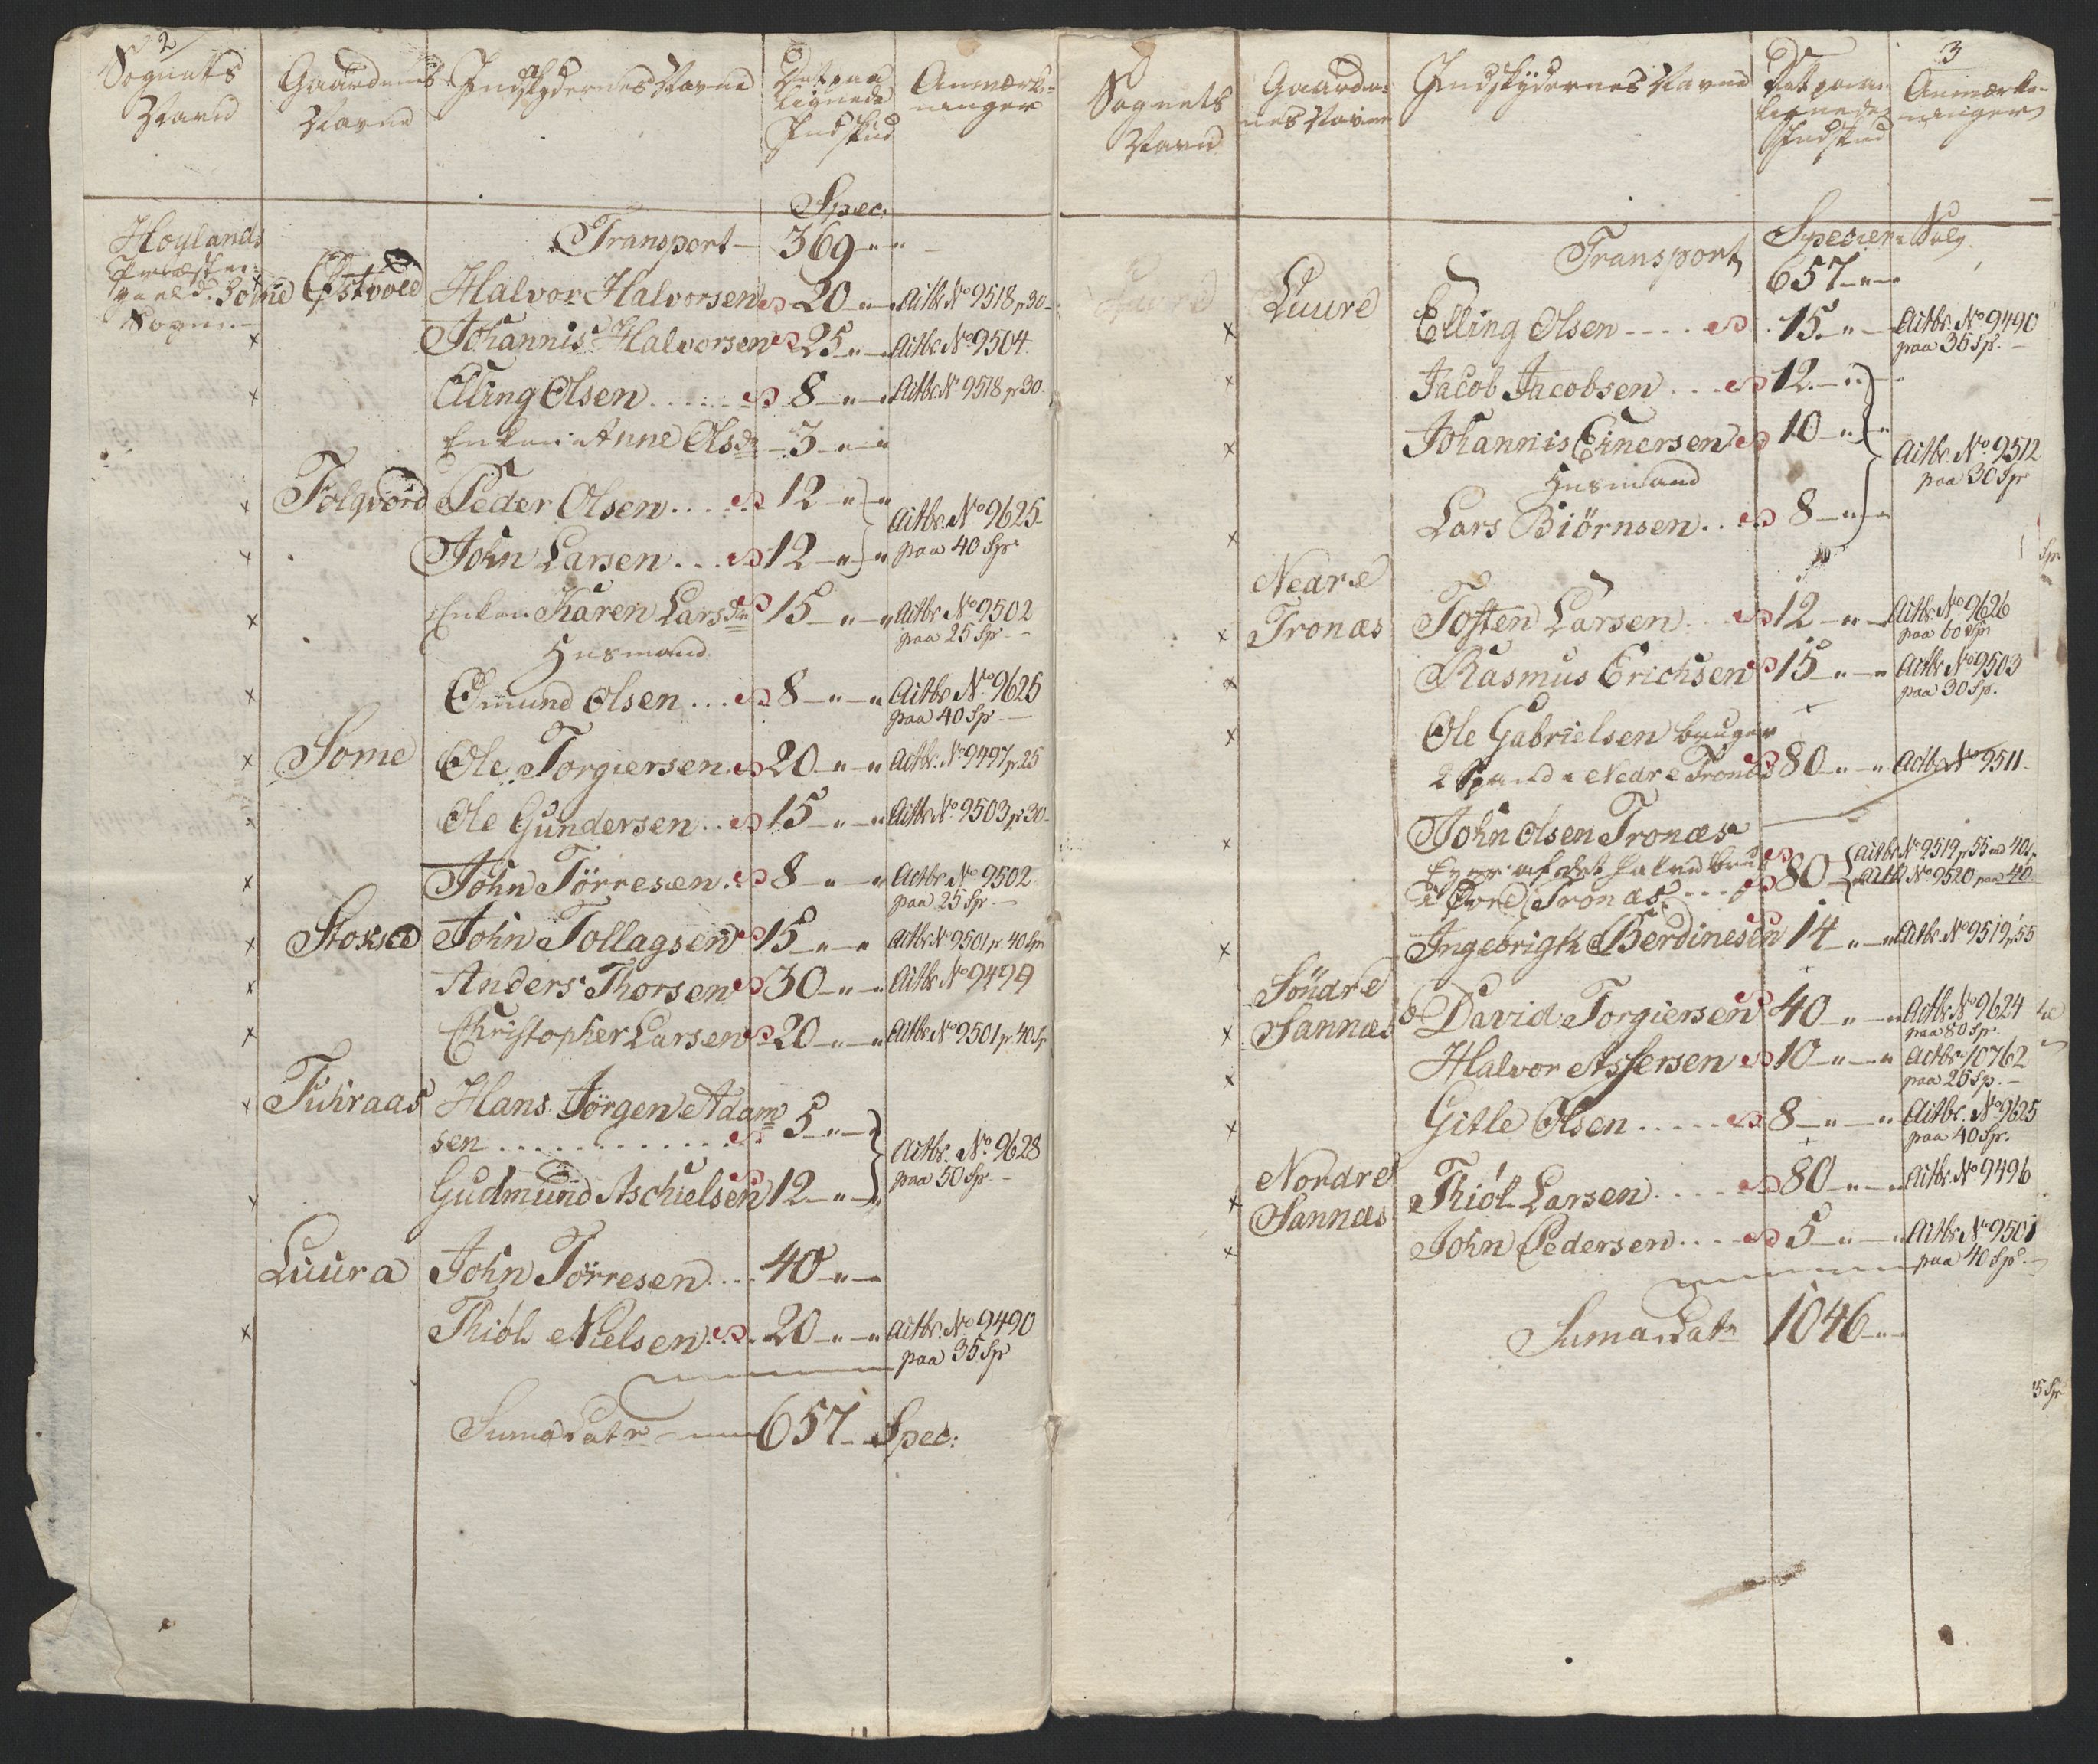 2
Sognets
Navn
Gaardenes
Navne
Indskydernes Navne
Det paa
lignede
Indskud
Anmærk-
ninger
Spec:
Høylands
Præste-
gield.
Sogn
Østvold
Transport 369
Halvor Halvorsen 20 Aitbr. No 9518 p 30
Johannis Halvorsen 25 Aitbr. No 9504
Elling Olsen 8 Aitbr. No 9518 p 30
Enken Anne Olsdr 3
Folqvord Peder Olsen 12
Aitbr. No 9625
John Larsen 12 paa 40 Sp
Enken Karen Larsdr 15 Aitbr. No 9502
paa 25 Sp
Husmand
Omund Olsen 8 Aitbr. No 9625
paa 40 Sp
Some Ole Torgiersen 20 Aitbr. No 9497 p 25
Ole Gundersen 15 Aitbr. No 9503 p 30
John Törresen 8 Aitbr. No 9502
paa 25 Sp
Stokke John Tollagsen 15 Aitbr No 9501 p 40 Sp
Anders Thorsen 30 Aitbr No 9499
Christopher Larsen 20 Aitbr No 9501 p 40 Sp
Fuhraas Hans Jörgen Adam
sen 5
Aitbr. No 9628
Gudmund Aschielsen 12 paa 50 Sp
Luura John Törresen 40
Thiöl Nielsen 20 Aitbr. No 9490
paa 35 Sp
Suma Latr 657 Spec:
3
Sognets
Navn
Gaarde-
nes Navne
Indskydernes Navne
Det paa-
lignede
Indskud
Anmærk-
ninger
Transport
Specier Sølv
657
Luure Elling Olsen 15 Aitbr. No 9490
paa 35 Sp.
Jacob Jacobsen 12
Johannis Einersen 10
Aitbr. No 9512
paa 30 Sp
Husmand
Lars Biörnsen 8
Nedre
Tronæs Tosten Larsen 12 Aitbr. No 9626
paa 60 Sp
Rasmus Erichsen 15 Aitbr No 9503
paa 30 Sp.
Ole Gabrielsen bruger
2 Spand i Nedre Tronæs 80 Aitbr No 9511
John Olsen Tronæs
Eyer af det halve brug
i Øvre Tronæs 80
Aitbr No 9519 p 55 med 40 Sp
Aitbr No 9520 paa 40
Ingebrigth Berdinesen 14 Aitbr. No 9519 p 55
Söndre
Sannæs David Torgiersen 40 Aitbr No 9624
paa 80 Sp.
Halvor Assersen 10 Aitbr 10762
paa 25 Sp.
Gitle Olsen 8 Aitbr. No 9625
paa 40 Sp.
Nordre
Sannæs Thiöl Larsen 80 Aitbr. No 9496
John Pedersen 5 Aitbr. No 9501
paa 40 Sp
Suma Latr 1046
5 Sp